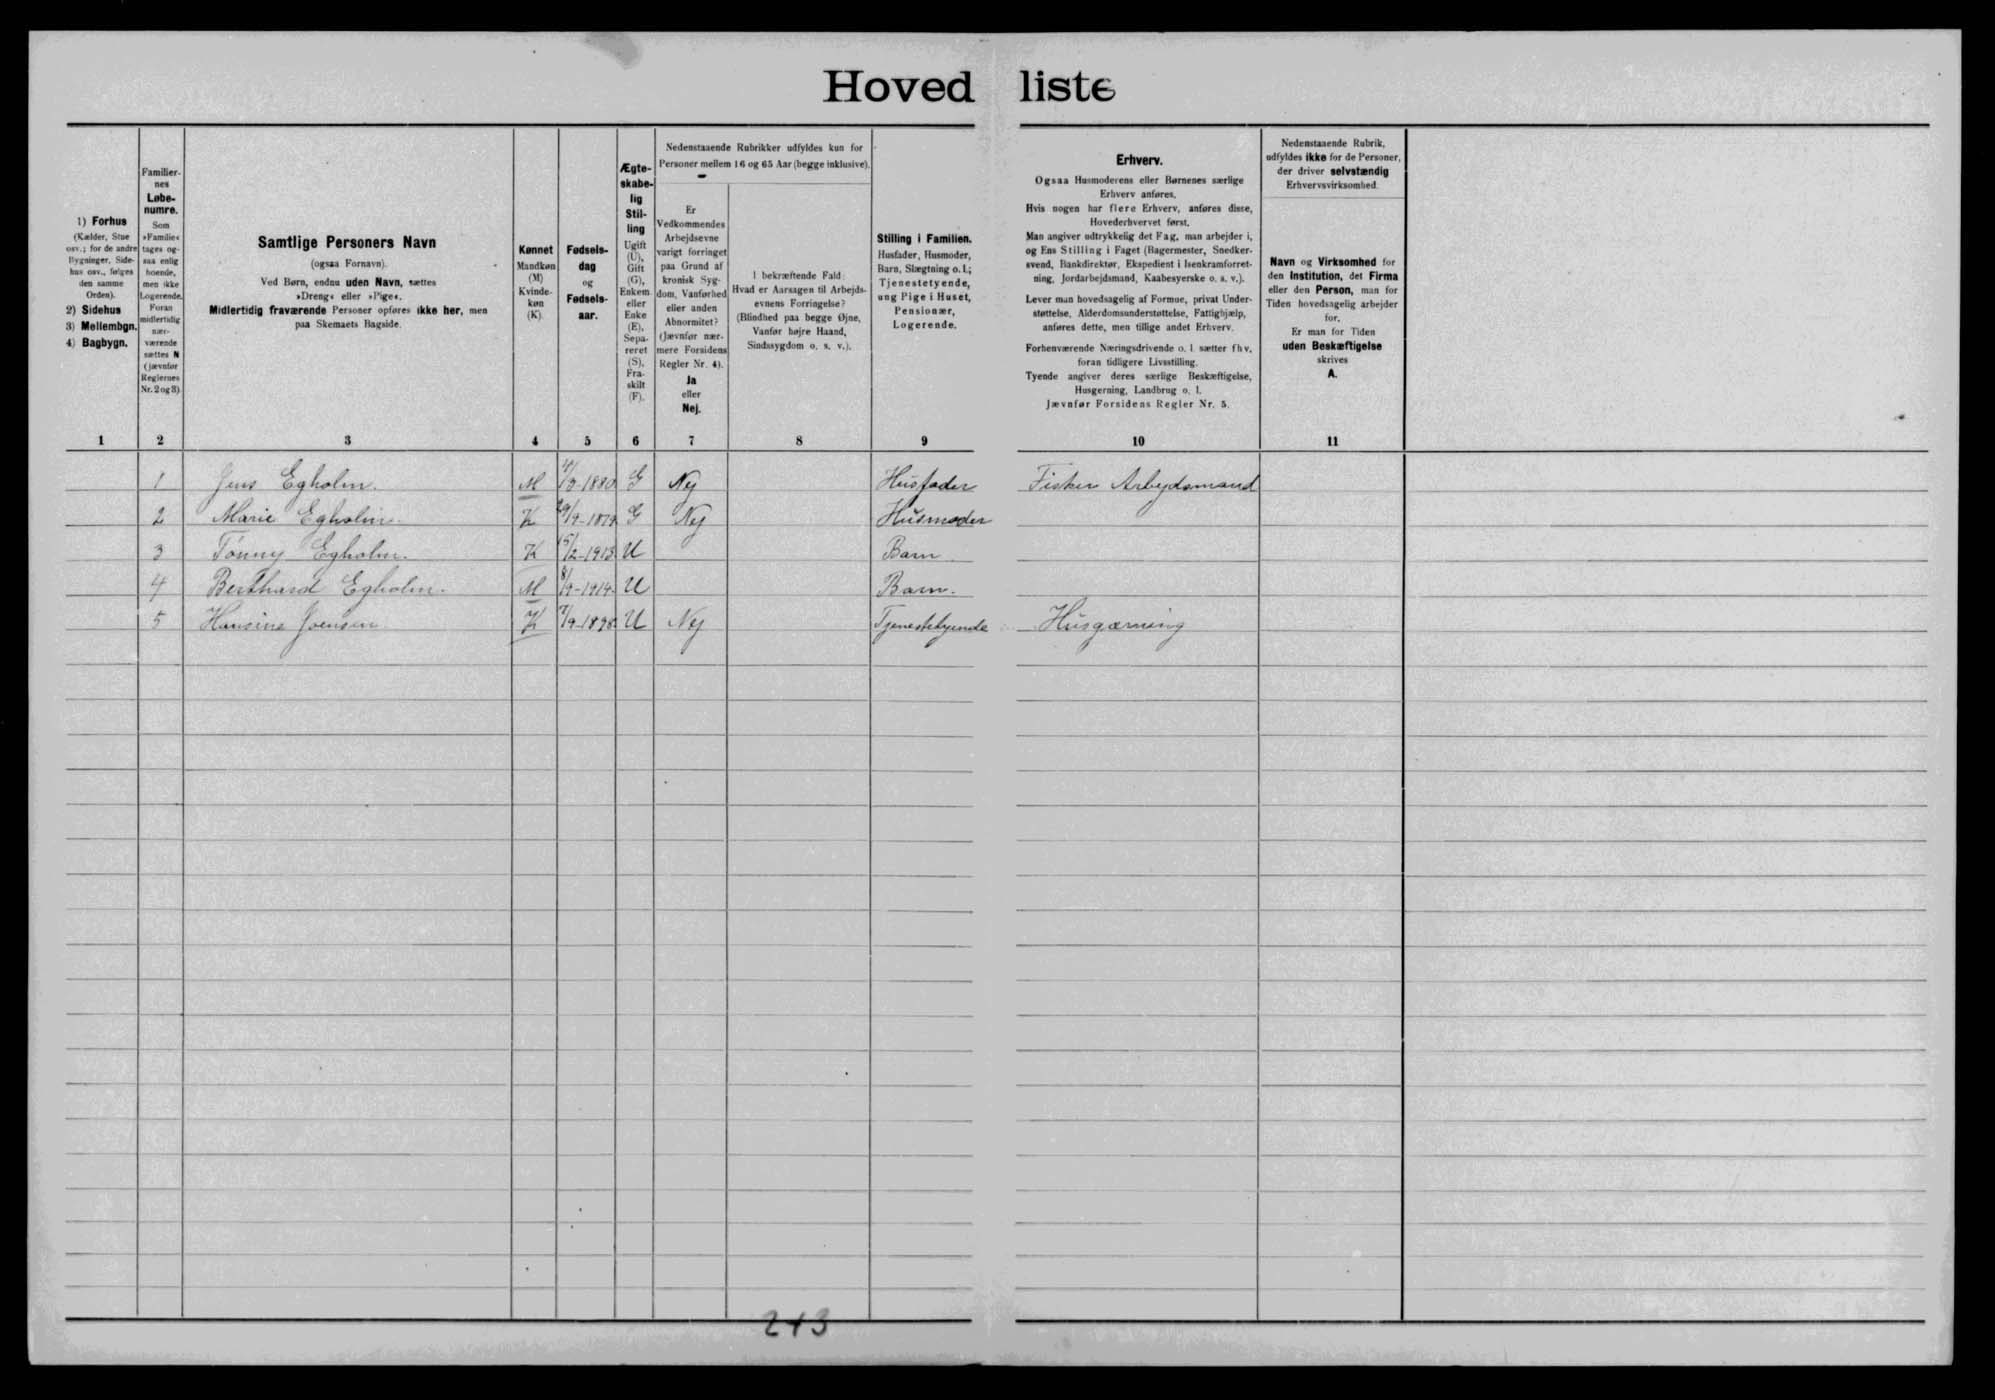 Hovedliste
1) Forhus
(Kælder, Stue
osv.; for de andre
Bygninger, Side-
hus osv., følges
den samme
Orden).
2) Sidehus
3) Mellembgn.
4) Bagbygn.
Familier-
nes
Løbe-
numre.
Som
»Familie«
tages og-
saa enlig
boende,
men ikke
Logerende.
Foran
midlertidig
nær-
værende
sættes N
(jævnfør
Reglernes
Nr. 2 og 3)
Samtlige Personers Navn
(ogsaa Fornavn).
Ved Børn, endnu uden Navn, sættes
»Dreng« eller »Pige«.
Midlertidig fraværende Personer opføres ikke her, men
paa Skemaets Bagside.
Kønnet
Mandkøn
(M)
Kvinde-
køn
(K).
Fødsels-
dag
og
Fødsels-
aar.
Ægte-
skabe-
lig
Stil-
ling
Ugift
(U),
Gift
(G),
Enkem.
eller
Enke
(E),
Sepa-
reret
(S),
Fra-
skilt
(F).
Nedenstaaende Rubrikker udfyldes kun for
Personer mellem 16 og 65 Aar (begge inklusive).
Er
Vedkommendes
Arbejdsevne
varigt forringet
paa Grund af
kronisk Syg-
dom, Vanførhed
eller anden
Abnormitet?
(Jævnfør nær-
mere Forsidens
Regler Nr. 4).
Ja
eller
Nej.
I bekræftende Fald:
Hvad er Aarsagen til Arbejds-
evnens Forringelse?
(Blindhed paa begge Øjne,
Vanfør højre Haand,
Sindssygdom o. s. v.).
Stilling i Familien.
Husfader, Husmoder,
Barn, Slægtning o. l.;
Tjenestetyende,
ung Pige i Huset,
Pensionær,
Logerende.
Erhverv.
Ogsaa Husmoderens eller Børnenes særlige
Erhverv anføres.
Hvis nogen har flere Erhverv, anføres disse,
Hovederhvervet først.
Man angiver udtrykkelig det Fag, man arbejder i,
og Ens Stilling i Faget (Bagermester, Snedker-
svend, Bankdirektør, Ekspedient i Isenkramforret-
ning, Jordarbejdsmand, Kaabesyerske o. s. v.).
Lever man hovedsagelig af Formue, privat Under-
støttelse, Alderdomsunderstøttelse, Fattighjælp,
anføres dette, men tillige andet Erhverv.
Forhenværende Næringsdrivende o. l. sætter fhv.
foran tidligere Livsstilling.
Tyende angiver deres særlige Beskæftigelse,
Husgerning, Landbrug o. l.
Jævnfør Forsidens Regler Nr. 5.
Nedenstaaende Rubrik,
udfyldes ikke for de Personer,
der driver selvstændig
Erhvervsvirksomhed.
Navn og Virksomhed for
den Institution, det Firma
eller den Person, man for
Tiden hovedsagelig arbejder
for.
Er man for Tiden
uden Beskæftigelse
skrives
A.
1 2 3 4 5 6 7 8 9 10 11
1 Jens Egholm. M 4/3-1880 G Nej Husfader Fisker Arbejdsmand
2 Marie Egholm. K 29/9-1879 G Nej Husmoder
3 Tonny Egholm. K 15/2-1913 U Barn
4 Berthard Egholm. M 8/9-1914. U Barn.
5 Hansine Joensen K 7/9-1898 U Nej Tjenestetyende Husgærning
243